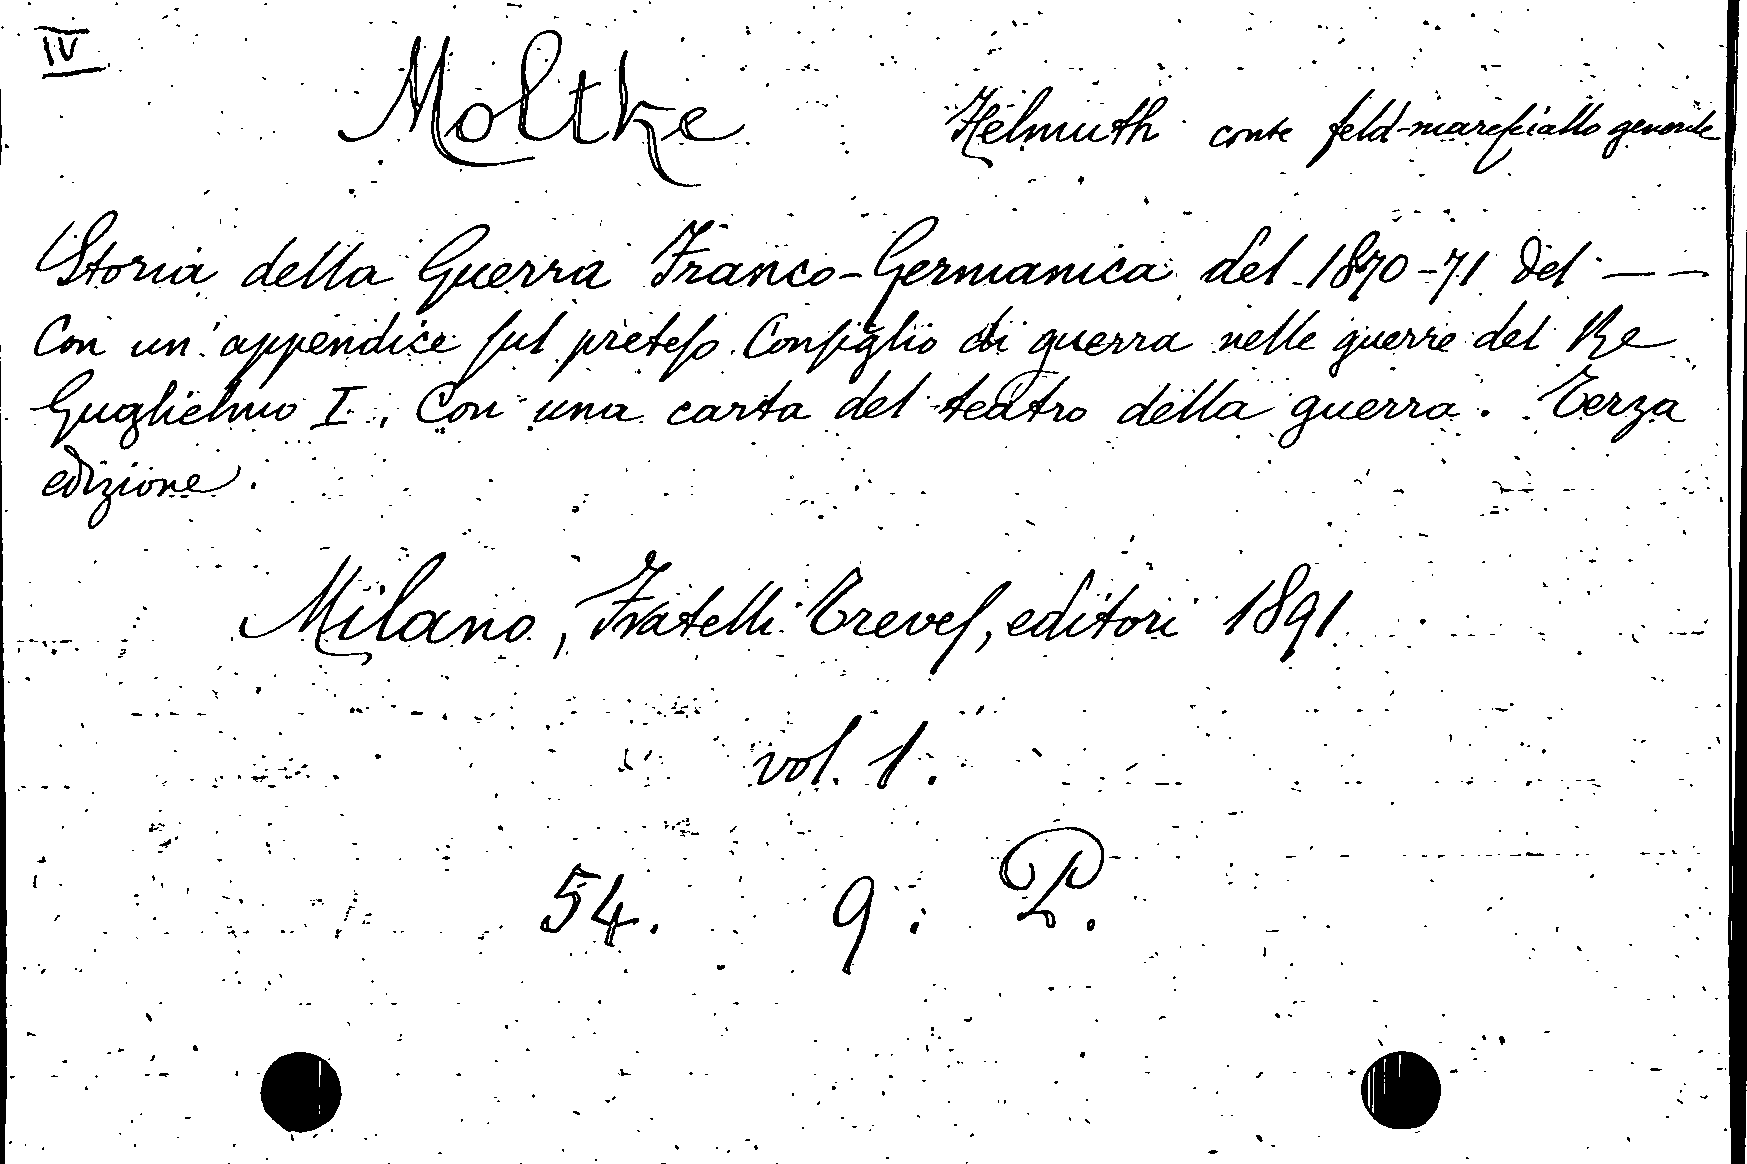 IV
Moltke Helmuth conte feld-maresciallo generale
Storia della Guerra Franco-Germanica del 1870-71 del — —
Con un'appendice sul preteso Consiglio di guerra nelle guerre del Re
Guglielmo I. Con una carta del teatro della guerra. Terza
edizione.
Milano, Fratelli Treves, editori 1891
vol. 1.
54. 9. P.